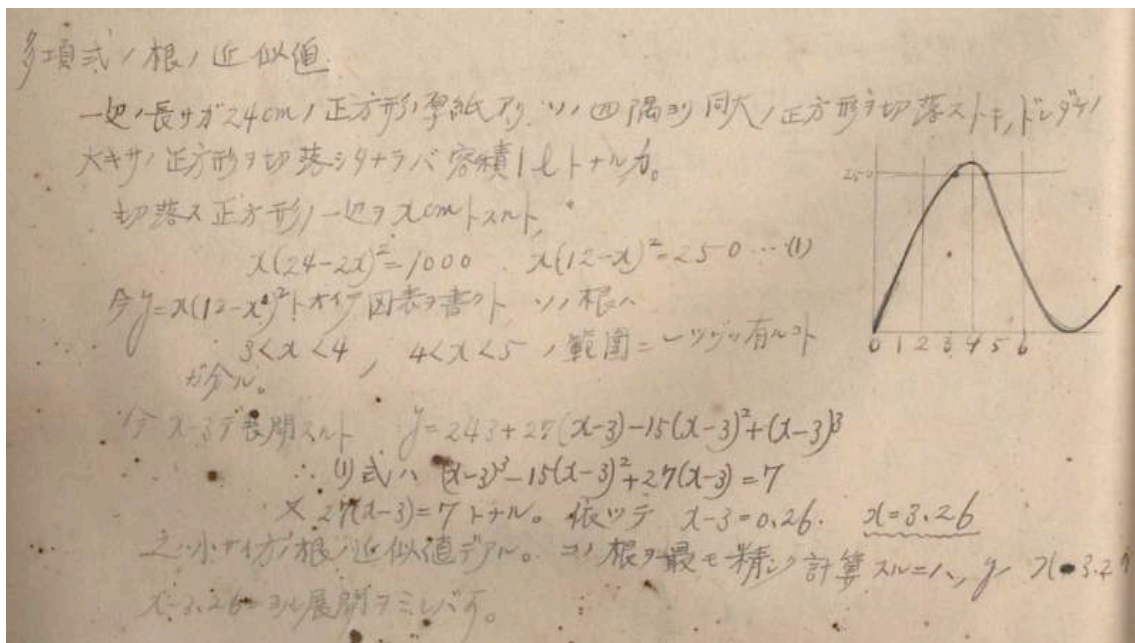 多項式ノ根ノ近似値
一辺ノ長サガ24cmノ正方形ノ厚紙アリ ソノ四隅ヨリ同大ノ正方形ヲ切落ストキ、ドレダケノ
大キサノ正方形ヲ切落シタナラバ容積1lトナルカ。
切落ス正方形ノ一辺ヲxcmトスルト、
x(24-2x)²=1000 x(12-x)²=250…(1)
今y=x(12-x)²トオイテ図表ヲ書クト ソノ根ハ
3<x<4, 4<x<5ノ範囲ニ一ツヅツ有ルコト
ガ分ル。
今x-3デ展開スルト y=243+27(x-3)-15(x-3)²+(x-3)³
∴(1)式ハ (x-3)³-15(x-3)²+27(x-3)=7
27(x-3)=7トナル。依ツテ x-3=0.26. x=3.26
之ハ小サイ方ノ根ノ近似値デアル。コノ根ヲ最モ精シク計算スルニハ、y
x-3.26ニヨル展開ヲミレバヨイ。
250
0 1 2 3 4 5 6